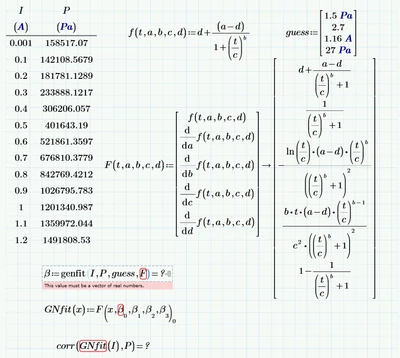 I P
(A) (Pa)
0.001 158517.07
0.1 142108.5679
0.2 181781.1289
0.3 233888.1217
0.4 306206.057
0.5 401643.19
0.6 521861.3597
0.7 676810.3779
0.8 842769.4212
0.9 1026795.783
1 1201340.987
1.1 1359972.044
1.2 1491808.53
f(t,a,b,c,d):=d+(a-d)/(1+(t/c)^b)
guess:=[1.5 Pa
2.7
1.16 A
27 Pa]
F(t,a,b,c,d):=[f(t,a,b,c,d)
d/da f(t,a,b,c,d)
d/db f(t,a,b,c,d)
d/dc f(t,a,b,c,d)
d/dd f(t,a,b,c,d)] →
[d+(a-d)/((t/c)^b+1)
1/((t/c)^b+1)
-(ln(t/c)•(a-d)•(t/c)^b)/((t/c)^b+1)^2
(b•t•(a-d)•(t/c)^(b-1))/(c^2•((t/c)^b+1)^2)
1-1/((t/c)^b+1)]
β:=genfit(I,P,guess,F)=?
This value must be a vector of real numbers.
GNfit(x):=F(x,β_0,β_1,β_2,β_3)_0
corr(GNfit(I),P)=?